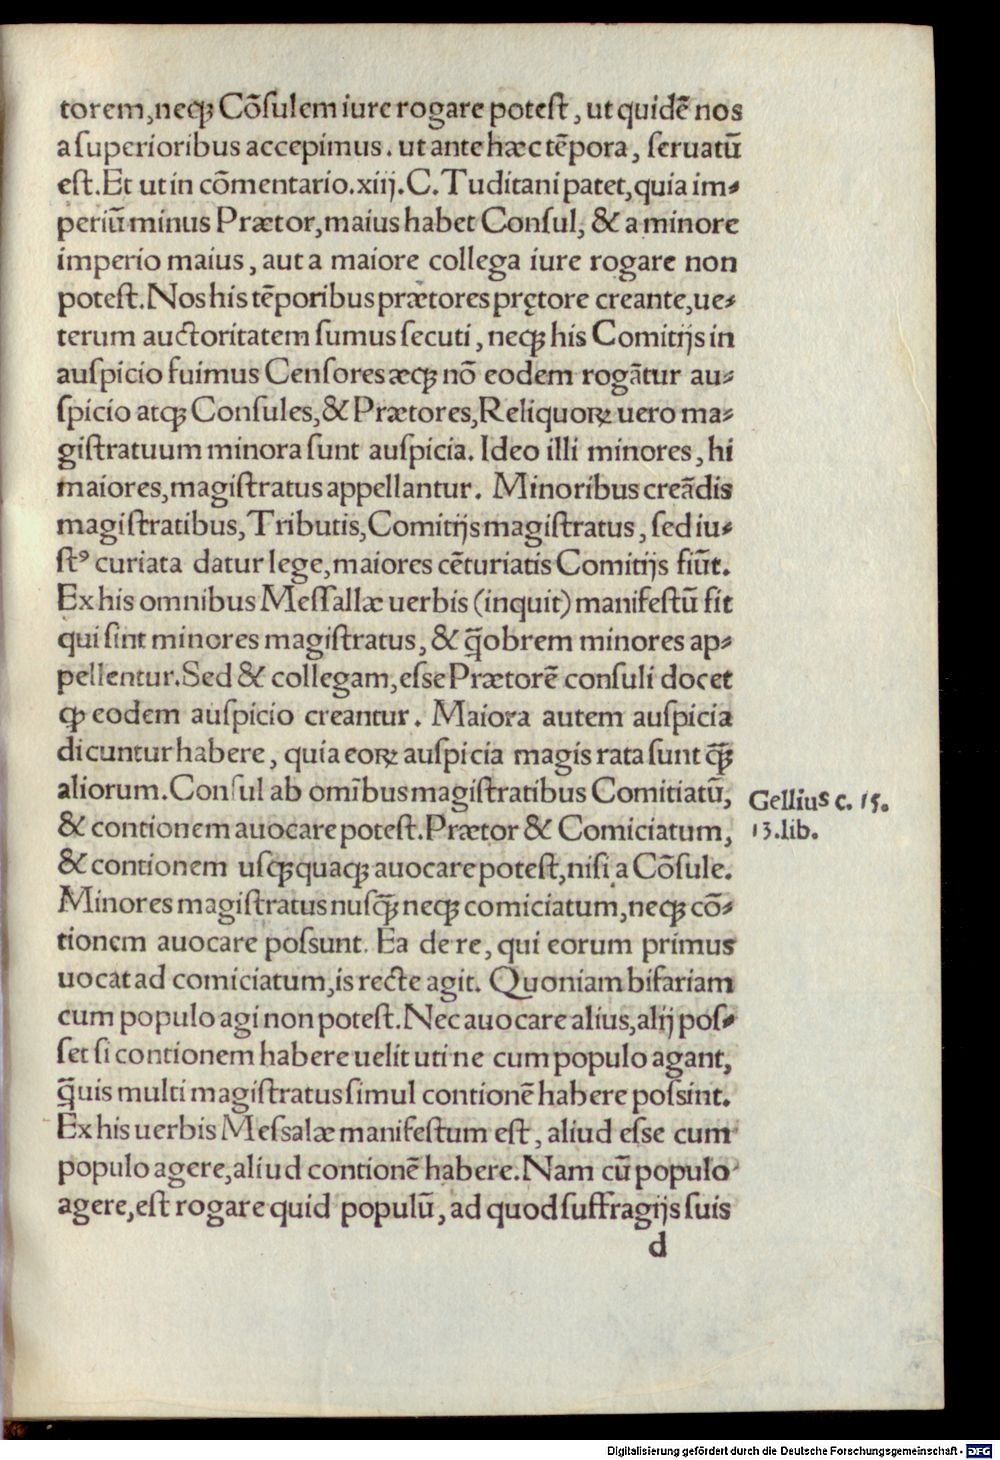 torem,neqꝫ Cōſulem iure rogare poteſt, ut quidē nos
a ſuperioribus accepimus. ut ante hæc tēpora, ſeruatū
eſt. Et ut in cōmentario.xiij.C.Tuditani patet,quia im-
periū minus Prætor,maius habet Conſul, & a minore
imperio maius, aut a maiore collega iure rogare non
poteſt. Nos his tēporibus prætores prętore creante,ue-
terum auctoritatem ſumus ſecuti, neqꝫ his Comitijs in
auſpicio fuimus Cenſores æqꝫ nō eodem rogātur au-
ſpicio atqꝫ Conſules,& Prætores,Reliquoꝝ uero ma-
giſtratuum minora ſunt auſpicia. Ideo illi minores, hi
maiores,magiſtratus appellantur. Minoribus creādis
magiſtratibus,Tributis,Comitijs magiſtratus, ſed iu-
ſtꝰ curiata datur lege,maiores cēturiatis Comitijs fiūt.
Ex his omnibus Meſſallæ uerbis (inquit) manifeſtū fit
qui ſint minores magiſtratus, & q̄obrem minores ap-
pellentur.Sed & collegam,eſse Prætorē conſuli docet
ꝙ eodem auſpicio creantur. Maiora autem auſpicia
dicuntur habere, quia eoꝝ auſpicia magis rata ſunt ꝙ̄
aliorum.Conſul ab omībus magiſtratibus Comitiatū,
& contionem auocare poteſt.Prætor & Comiciatum,
& contionem uſqꝫquaqꝫ auocare poteſt,niſi a Cōſule.
Minores magiſtratus nuſꝙ̄ neqꝫ comiciatum,neqꝫ cō-
tionem auocare poſsunt. Ea de re, qui eorum primus
uocat ad comiciatum,is recte agit. Quoniam bifariam
cum populo agi non poteſt.Nec auocare alius,alij poſ-
ſet ſi contionem habere uelit uti ne cum populo agant,
q̄uis multi magiſtratus ſimul contionē habere poſsint.
Ex his uerbis Meſsalæ manifeſtum eſt, aliud eſse cum
populo agere,aliud contionē habere.Nam cū populo
agere,eſt rogare quid populū, ad quod ſuffragijs ſuis
d
Gellius c. 15.
13.lib.
Digitalisierung gefördert durch die Deutsche Forschungsgemeinschaft - DFG